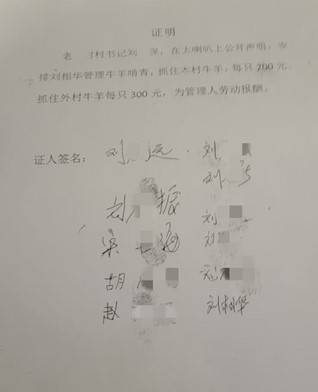 证明
老 村书记刘 深,在大喇叭上公开声明,安
排刘相华管理牛羊啃青,抓住本村牛羊,每只200元,
抓住外村牛羊每只300元,为管理人劳动报酬。
证人签名:
刘 远 刘
刘
刘 振 刘
梁 海
胡
赵 刘相华